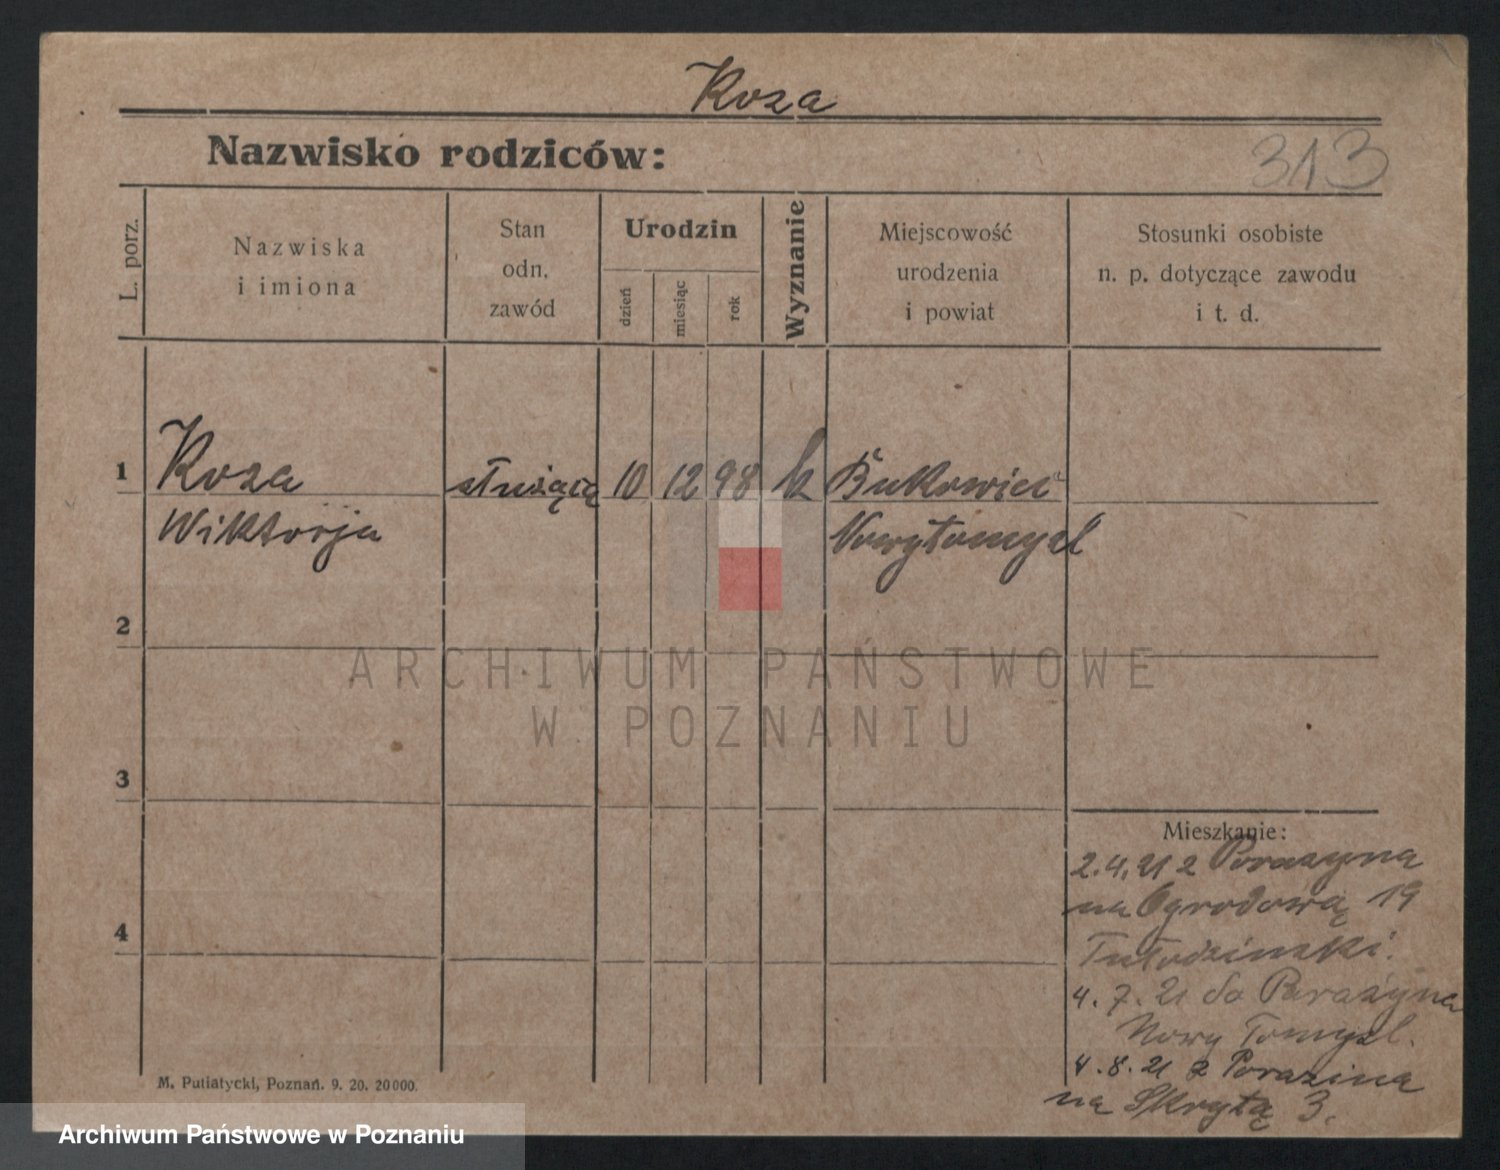 Koza
Nazwisko rodziców:
313
L. porz.
Nazwiska
i imiona
Stan
odn.
zawód
Urodzin
dzień
miesiąc
rok
Wyznanie
Miejscowość
urodzenia
i powiat
Stosunki osobiste
n. p. dotyczące zawodu
i t. d.
1 Koza służącą 10 12 98 k Bukowiec
Wiktorja Nowytomysl
2
ARCHIWUM PAŃSTWOWE
W POZNANIU
3
Mieszkanie:
2.4.21 z Porazyna
na Ogrodową 19
4
4.7.21 do Parazyna
Nowy Tomysl.
4.8.21 z Porazina
na Skrytą 3.
M. Putiatycki, Poznań. 9. 20. 20000.
Archiwum Państwowe w Poznaniu